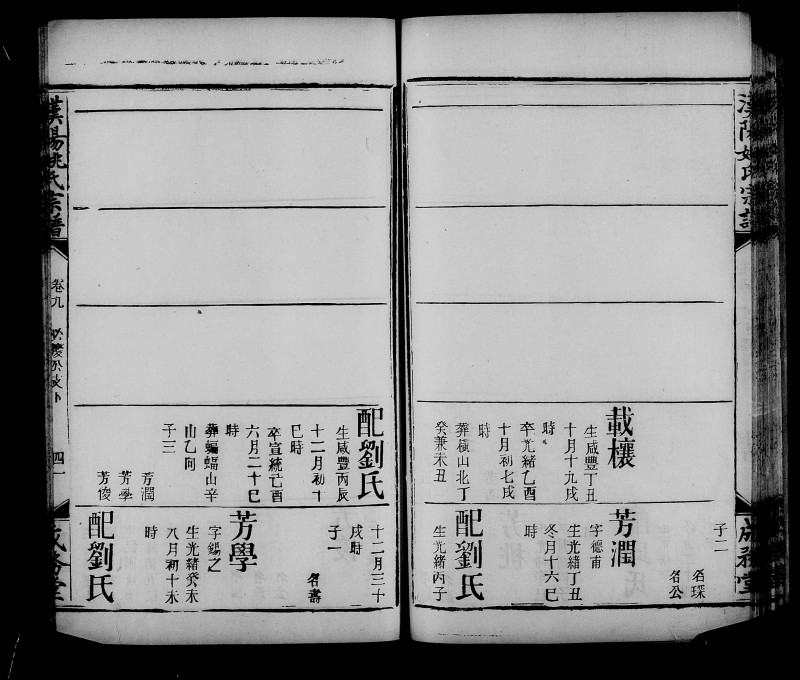 漢陽姚氏宗譜
成務堂
載樸
生咸豐丁丑
十月十九戌
時
卒光緒乙酉
十月初七戌
時
葬橫山北丁
癸兼未丑
子二
名琛
名公
芳潤
字德甫
生光緒丁丑
冬月十六巳
時
配劉氏
生光緒丙子
配劉氏
生咸豐丙辰
十二月初十
巳時
卒宣統己酉
六月二十巳
時
葬蝙蝠山辛
山乙向
子三
芳潤
芳學
芳俊
十二月三十
戌時
子一
名壽
芳學
字錫之
生光緒癸未
八月初十未
時
配劉氏
漢陽姚氏宗譜
卷九
四一
成務堂